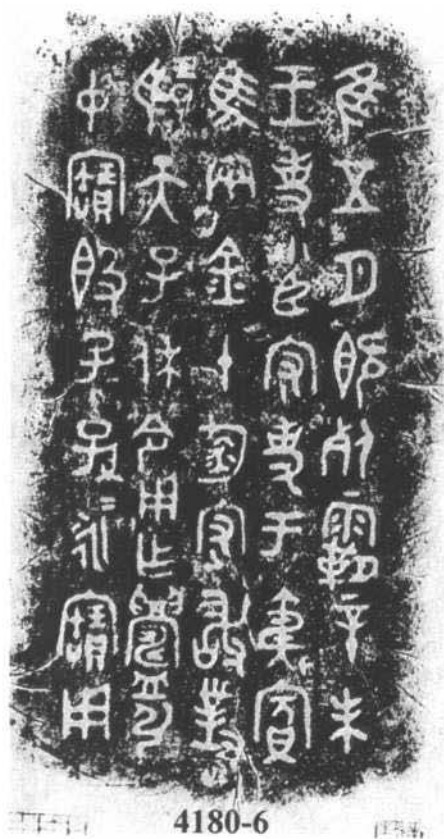 隹五月既死霸辛未
王吏小臣守吏于夷賓
馬兩金十鈞守敢對
揚天子休令用乍鑄引
中寶𣪘子孫=永寶用
4180-6